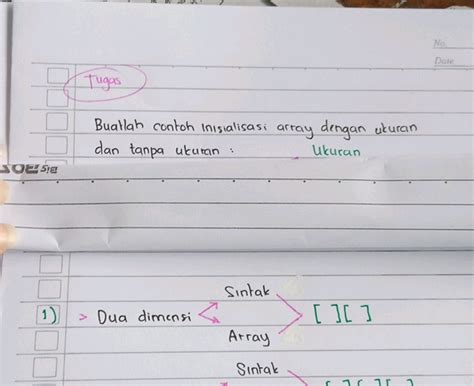 No.
Date
Tugas
Buatlah contoh Inisialisasi array dengan ukuran
dan tanpa ukuran : Ukuran
Sintak
1) > Dua dimensi [ ][ ]
Array
Sintak
[ ][ ][ ]